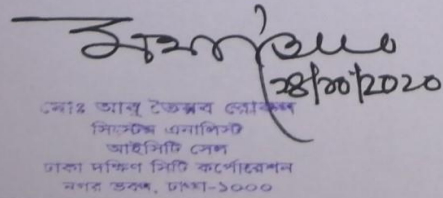 ২৪/১০/2020
মোঃ আবু তৈয়ব রোকন
সিস্টেম এনালিস্ট
আইসিটি সেল
ঢাকা দক্ষিণ সিটি কর্পোরেশন
নগর ভবন, ঢাকা-১০০০